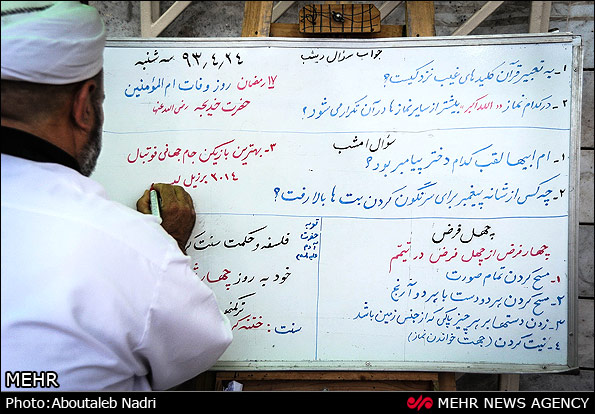 جواب سؤال دیشب
سه شنبه ۹۳,۴,۲۴
۱- به تعبیر قرآن کلیدهای غیب نزد کیست؟
۱۷ رمضان روز وفات ام المؤمنین
حضرت خدیجه رضی الله عنها
۲- در کدام نماز «الله اکبر» بیشتر از سایر نمازها در آن تکرار می شود؟
سؤال امشب
۱- ام ابیها لقب کدام دختر پیامبر بود؟
۳- بهترین بازیکن جام جهانی فوتبال
۲۰۱۴ برزیل
۲- چه کس از شانه پیغمبر برای سرنگون کردن بت ها بالا رفت؟
چهل فرض
چهار فرض از چهل فرض در تیمّم
۱- مسح کردن تمام صورت
۲- مسح کردن هر دو دست با هر دو آرنج
۳- زدن دستها بر هر چیز پاکی که از جنس زمین باشد
۴- نیت کردن (جهت خواندن نماز)
فلسفه و حکمت سنت
خود به روز
سنت: ختنه
MEHR
Photo:Aboutaleb Nadri
MEHR NEWS AGENCY